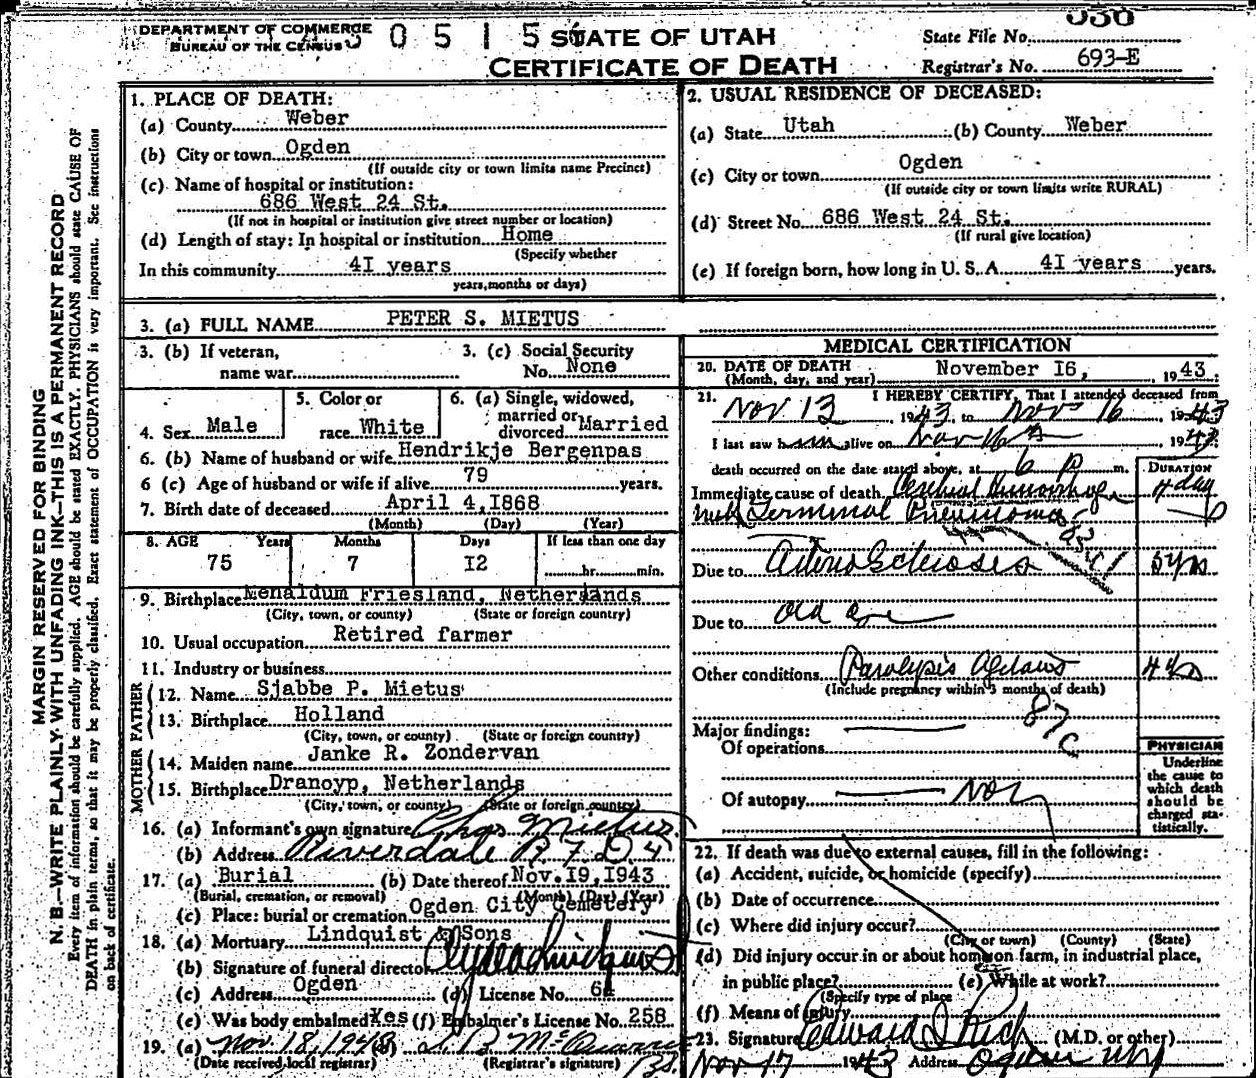 DEPARTMENT OF COMMERCE
BUREAU OF THE CENSUS
0 5 1 5
STATE OF UTAH
CERTIFICATE OF DEATH
State File No.
Registrar's No. 693-E
MARGIN RESERVED FOR BINDING
N. B.—WRITE PLAINLY WITH UNFADING INK—THIS IS A PERMANENT RECORD
Every item of information should be carefully supplied. AGE should be stated EXACTLY. PHYSICIANS should state CAUSE OF
DEATH in plain terms, so that it may be properly classified. Exact statement of OCCUPATION is very important. See instructions
on back of certificate.
1. PLACE OF DEATH:
(a) County Weber
(b) City or town Ogden
(If outside city or town limits name Precinct)
(c) Name of hospital or institution:
686 West 24 St.
(If not in hospital or institution give street number or location)
(d) Length of stay: In hospital or institution Home
(Specify whether
In this community 4I years
years, months or days)
2. USUAL RESIDENCE OF DECEASED:
(a) State Utah (b) County Weber
(c) City or town Ogden
(If outside city or town limits write RURAL)
(d) Street No. 686 West 24 St.
(If rural give location)
(e) If foreign born, how long in U. S. A. 4I years years.
3. (a) FULL NAME PETER S. MIETUS
3. (b) If veteran, name war
3. (c) Social Security No. None
4. Sex Male
5. Color or race White
6. (a) Single, widowed, married or divorced Married
6. (b) Name of husband or wife Hendrikje Bergenpas
6 (c) Age of husband or wife if alive 79 years.
7. Birth date of deceased April 4, I868
(Month) (Day) (Year)
8. AGE Years Months Days If less than one day
75 7 I2 hr. min.
9. Birthplace Menaldum Friesland, Netherlands
(City, town, or county) (State or foreign country)
10. Usual occupation Retired farmer
11. Industry or business
FATHER
12. Name Sjabbe P. Mietus
13. Birthplace Holland
(City, town, or county) (State or foreign country)
MOTHER
14. Maiden name Janke R. Zondervan
15. Birthplace Dranoyp, Netherlands
(City, town, or county) (State or foreign country)
16. (a) Informant's own signature Chas Mietus
(b) Address Riverdale R.F.D 4
17. (a) Burial (b) Date thereof Nov. I9, I943
(Burial, cremation, or removal) (Month) (Day) (Year)
(c) Place: burial or cremation Ogden City Cemetery
18. (a) Mortuary Lindquist & Sons
(b) Signature of funeral director
(c) Address Ogden (d) License No.
(e) Was body embalmed Yes (f) Embalmer's License No. 258
19. (a) Nov. 18, 1943 (b)
(Date received local registrar) (Registrar's signature)
MEDICAL CERTIFICATION
20. DATE OF DEATH November I6, 1943
(Month, day, and year)
21. I HEREBY CERTIFY, That I attended deceased from
Nov 13 1943, to Nov 16 1943
I last saw him alive on Nov 16 1943
death occurred on the date stated above, at 6 p m.
DURATION
Immediate cause of death Cerebral Hemorrhage 4 day
with Terminal Pneumonia
Due to Arteriosclerosis 5 yrs
Due to old age
Other conditions Paralysis Agitans 4 yrs
(Include pregnancy within 3 months of death)
87c
Major findings:
Of operations
Of autopsy
PHYSICIAN
Underline
the cause to
which death
should be
charged sta-
tistically.
22. If death was due to external causes, fill in the following:
(a) Accident, suicide, or homicide (specify)
(b) Date of occurrence
(c) Where did injury occur?
(City or town) (County) (State)
(d) Did injury occur in or about home, on farm, in industrial place,
in public place? (e) While at work?
(Specify type of place
(f) Means of injury
23. Signature Edward I Rich (M.D. or other)
Nov 17 1943 Address Ogden Utah